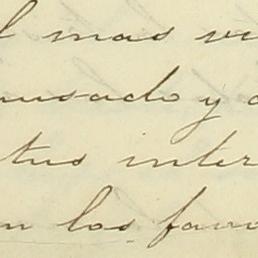 l mas
ausado y
tus inter
n los favo